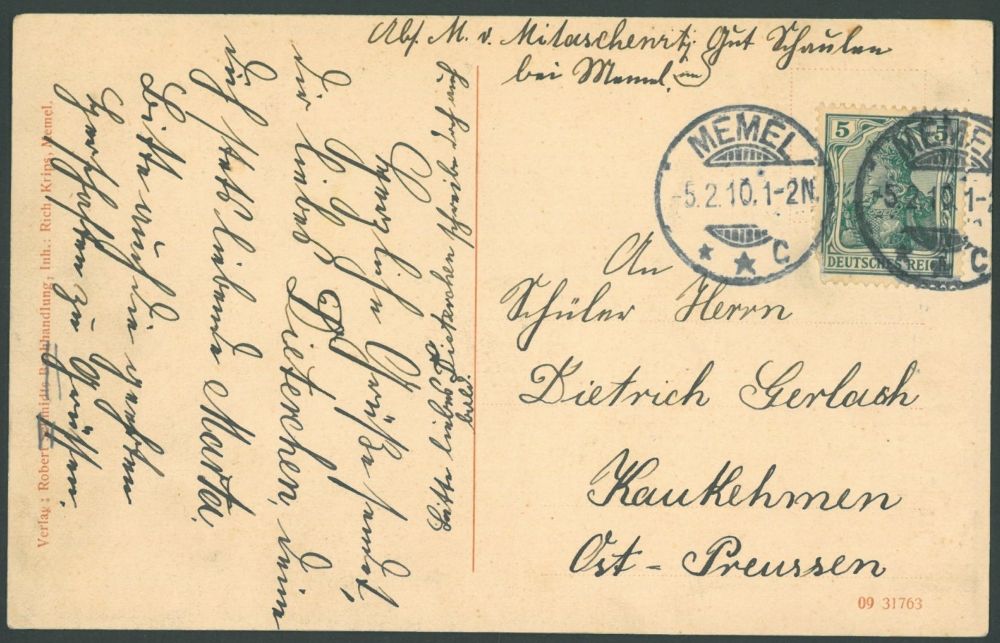 Abs. M. v. Mitaschenrtj Gut Schaulen
bei Memel.
MEMEL
-5.2.10.1-2N.
C
MEMEL
-5.2.10.1-2
C
5
5
DEUTSCHES REICH
An
Schüler Herrn
Dietrich Gerlach
Kaukehmen
Ost-Preussen
09 31763
Bitte liebes Dieterchen schreibe doch auch
bald.
Herzliche Grüße sendet
dir liebes Dieterchen, deine
dich stets liebende Marta.
Bitte auch die geehrten
Herrschaften zu Grüßen.
Verlag: Robert Schmidts Buchhandlung, Inh.: Rich. Krips, Memel.